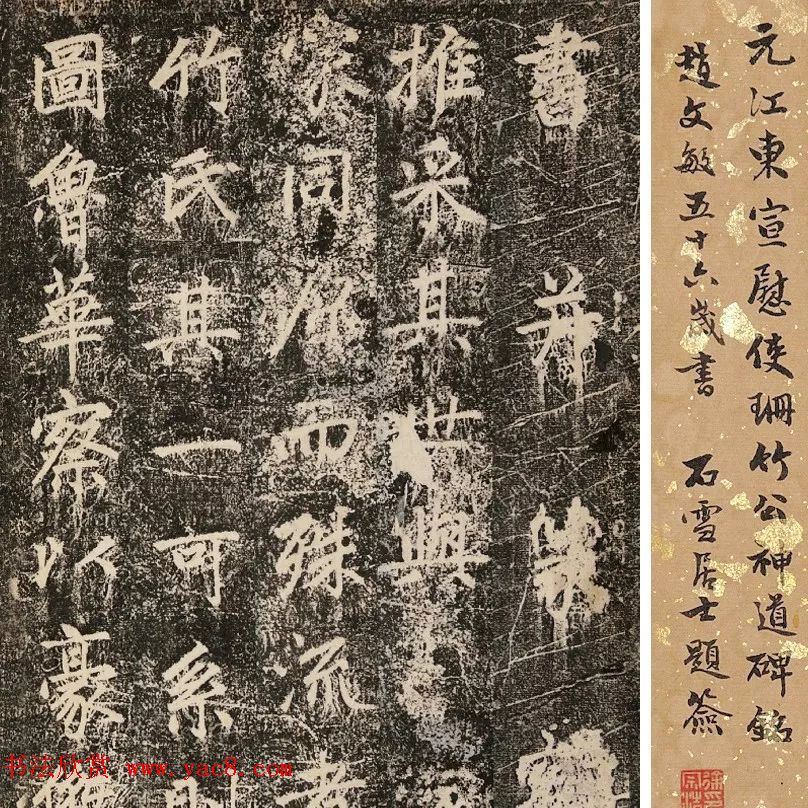 元江東宣慰使珊竹公神道碑銘
趙文敏五十六歲書 石雪居士題簽
書 并 篆
推采其世與
家同源而殊流者
竹氏其一可系
圖魯華察以豪
书法欣赏 www.yac8.com